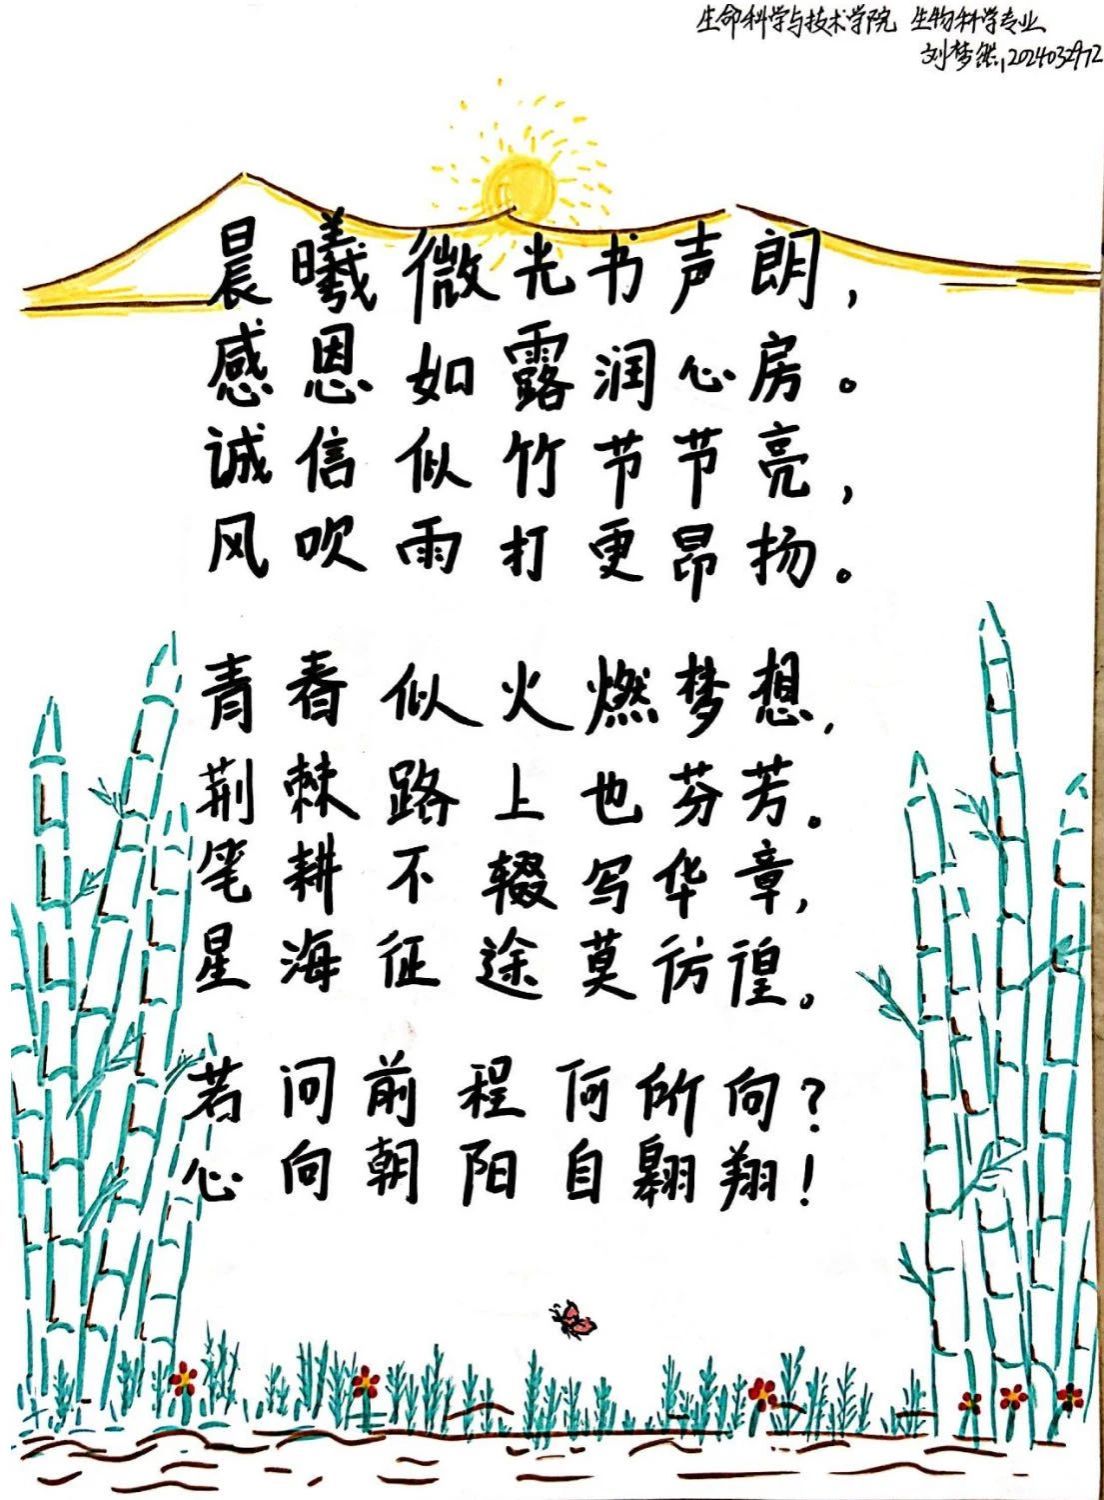 生命科学与技术学院 生物科学专业
刘梦然,2024032972
晨曦微光书声朗,
感恩如露润心房。
诚信似竹节节亮,
风吹雨打更昂扬。
青春似火燃梦想,
荆棘路上也芬芳。
笔耕不辍写华章,
星海征途莫彷徨。
若问前程何所向?
心向朝阳自翱翔!